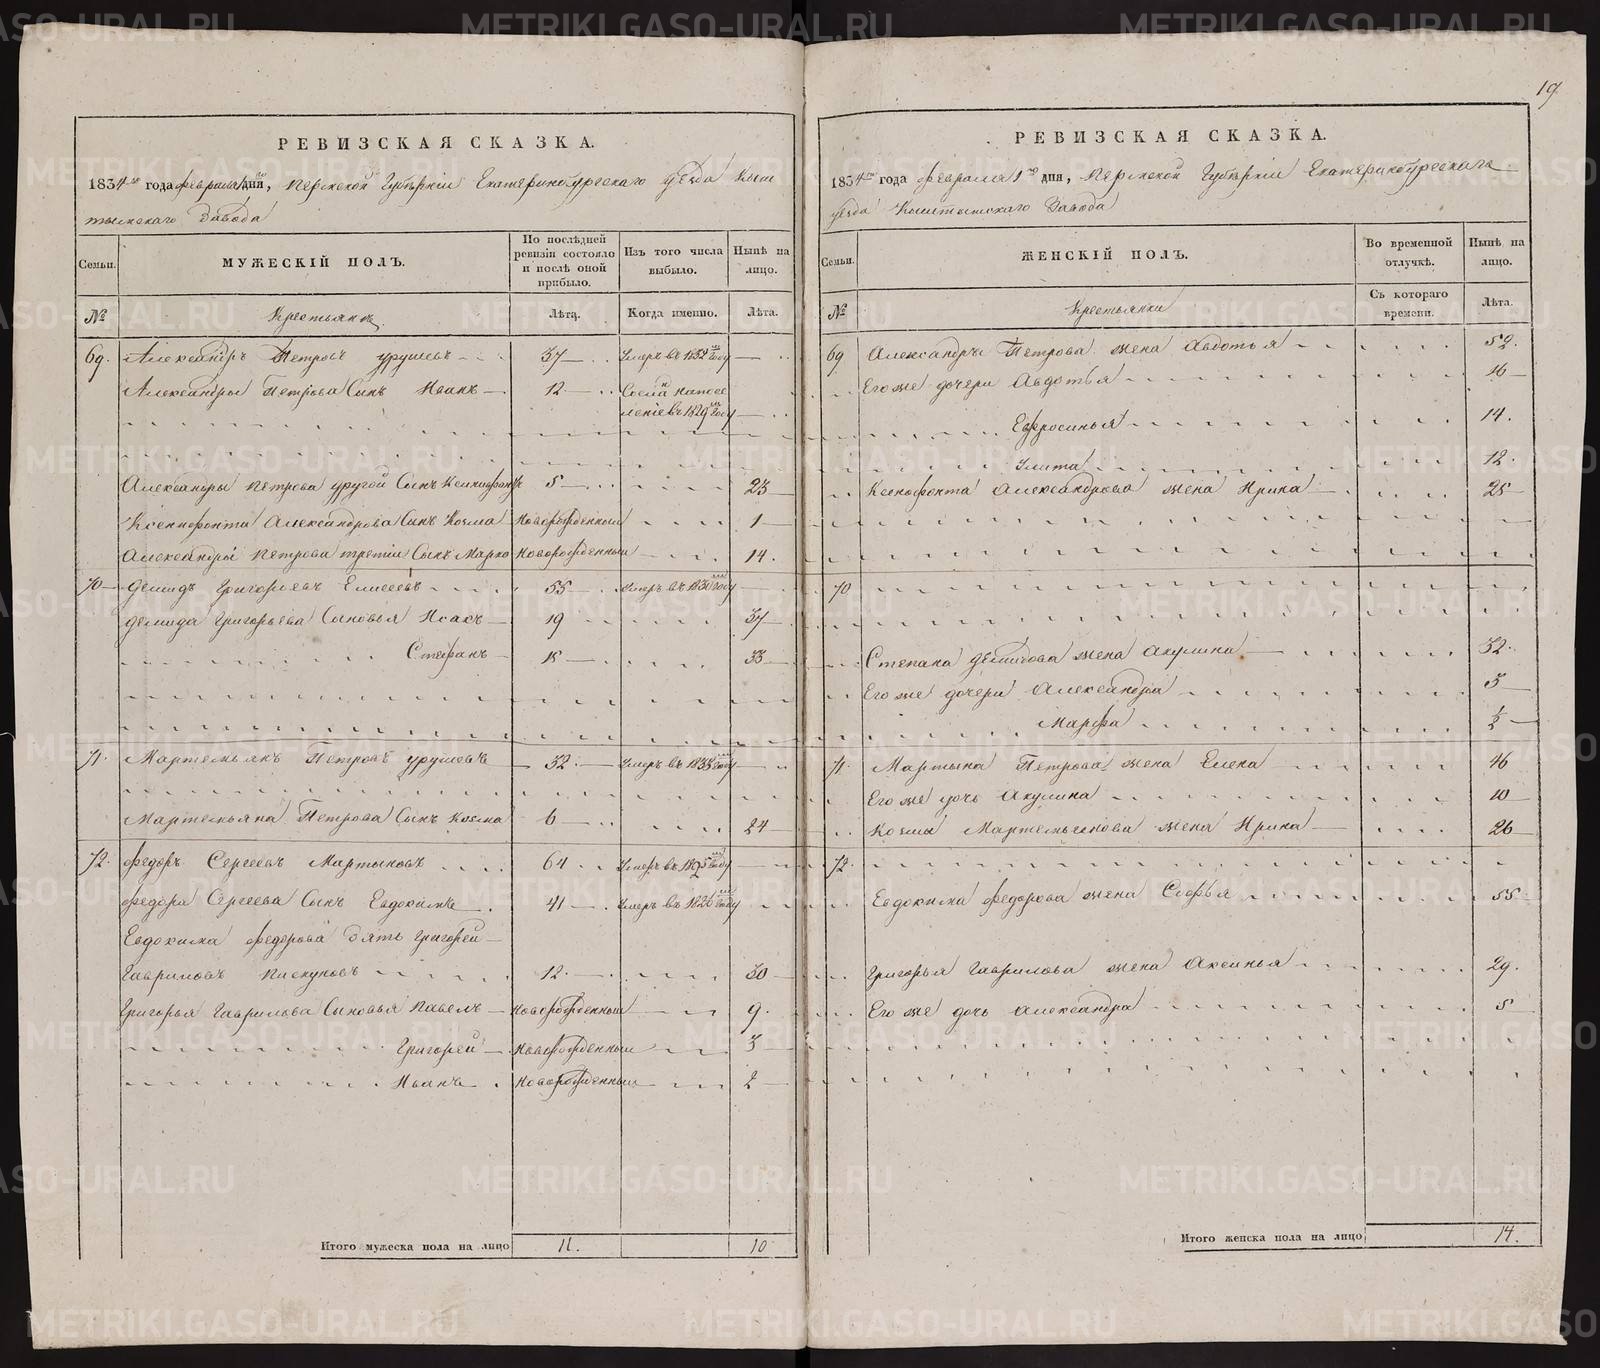 19
РЕВИЗСКАЯ СКАЗКА.
1834го года февраля 1го дня, Пермской Губерніи Екатеринбургскаго уезда Кыш
тымскаго Завода
Семьи. МУЖЕСКІЙ ПОЛЪ. По послѣдней ревизіи состояло и послѣ оной прибыло. Изъ того числа выбыло. Нынѣ на лицо.
№ Крестьянъ Лѣта. Когда именно. Лѣта.
69. Александръ Петровъ 37 Умеръ въ 1832 году
Александры Петрова Сынъ Иванъ 12 Сосланъ на посе
леніе въ 1829 году
Александры Петрова другой Сынъ Ксенофонтъ 5 23
Ксенофонта Александрова Сынъ Козма Новорожденный 1
Александры Петрова третій Сынъ Марко Новорожденный 14.
70 Демидъ Григорьевъ Елисеевъ 55 Умеръ въ 1830 году
Демида Григорьева Сыновья Исакъ 19 37
Стефанъ 18 33
71. Мартемьянъ Петровъ 32 Умеръ въ 1833 году
Мартемьяна Петрова Сынъ Козма 6 24
72. Федоръ Сергеевъ Мартыновъ 64 Умеръ въ 1825 году
Федора Сергеева Сынъ Евдокимъ 41 Умеръ въ 1826 году
Евдокима Федорова Зять Григорей
Гавриловъ Пискуновъ 12. 30
Григорья Гаврилова Сыновья Павелъ Новорожденный 9.
Григорей Новорожденный 3
Иванъ Новорожденный 2
Итого мужеска пола на лицо 11. 10
РЕВИЗСКАЯ СКАЗКА.
1834го года февраля 1го дня, Пермской Губерніи Екатеринбургскаго
уезда Кыштымскаго Завода
Семьи. ЖЕНСКІЙ ПОЛЪ. Во временной отлучкѣ. Нынѣ на лицо.
№ Крестьянки Съ котораго времени. Лѣта.
69 Александры Петрова жена Авдотья 52.
Его же дочери Авдотья 16
Ефросинья 14.
Улита 12.
Ксенофонта Александрова жена Ирина 25
70
Степана Демидова жена Акулина 32.
Его же дочери Александра 3
Марфа ½
71. Мартына Петрова жена Елена 46
Его же дочь Акулина 10
Козмы Мартемьянова жена Ирина 26
72.
Евдокима Федорова жена Софья 55
Григорья Гаврилова жена Аксинья 29.
Его же дочь Александра 5
Итого женска пола на лицо 14.
METRIKI.GASO-URAL.RU